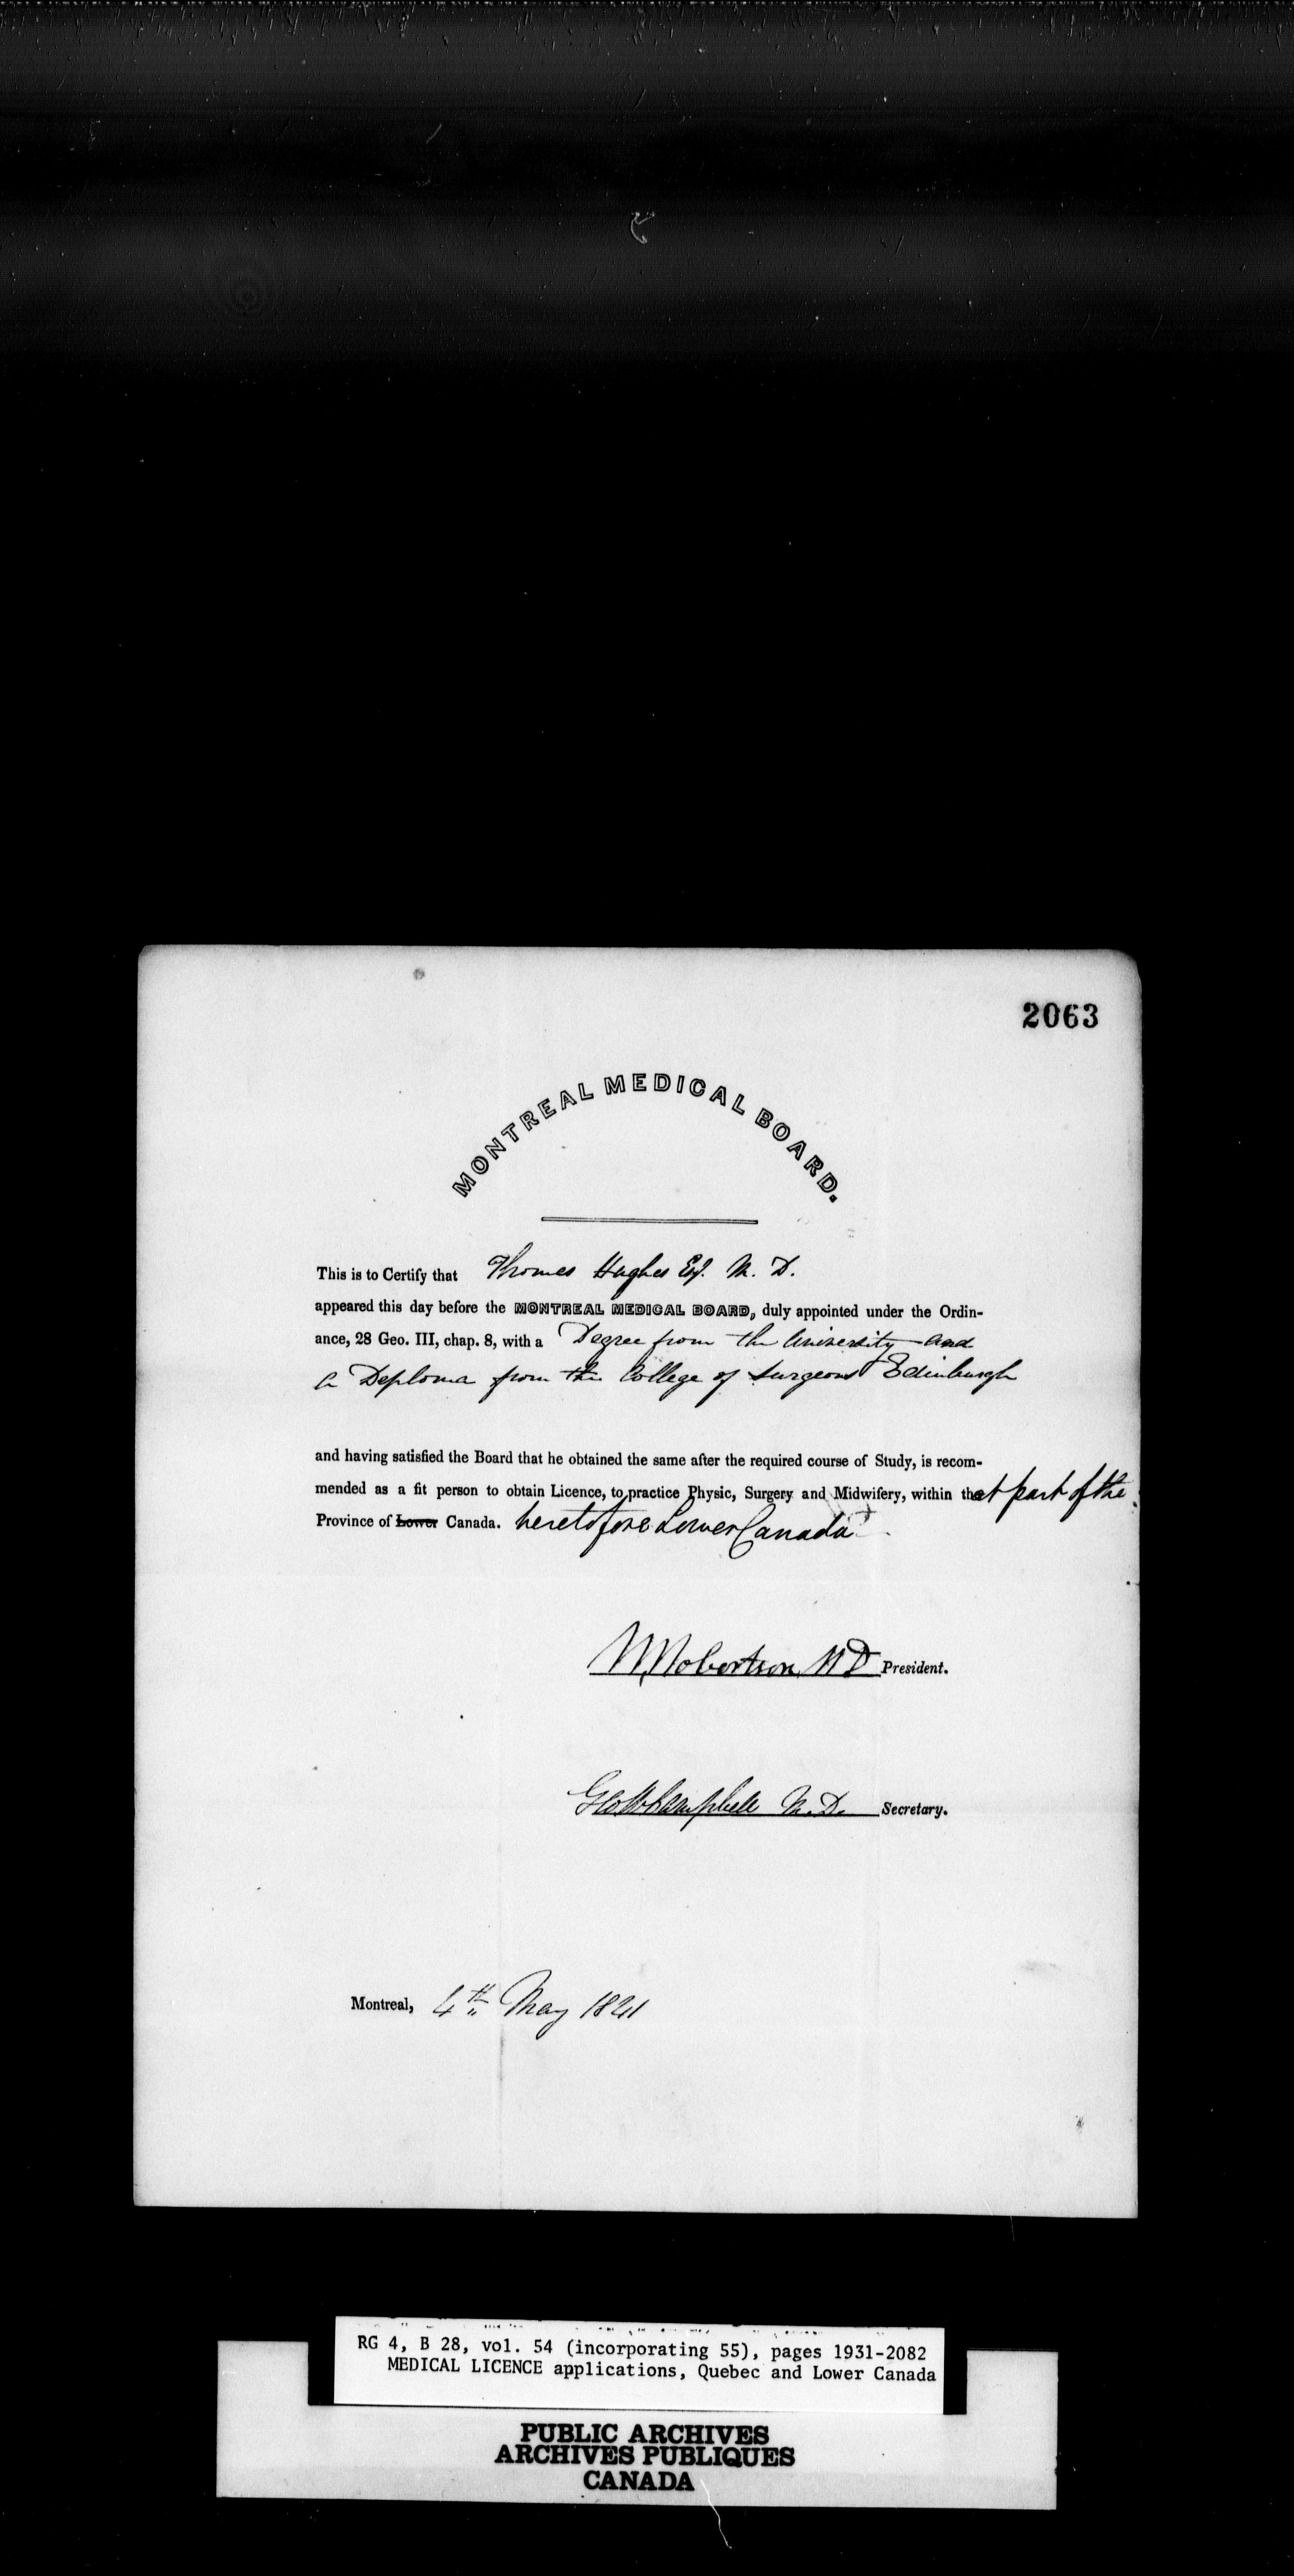 2063
MONTREAL MEDICAL BOARD.
This is to Certify that Thomas Hughes Esq. M. D.
appeared this day before the MONTREAL MEDICAL BOARD, duly appointed under the Ordin-
ance, 28 Geo. III, chap. 8, with a Degree from the University and
a Deploma from the College of Surgeons Edinburgh
and having satisfied the Board that he obtained the same after the required course of Study, is recom-
mended as a fit person to obtain Licence, to practice Physic, Surgery and Midwifery, within that part of the
Province of Lower Canada. heretofore Lower Canada
W Robertson MD President.
Geo W Campbell M.D. Secretary.
Montreal, 4th May 1841
RG 4, B 28, vol. 54 (incorporating 55), pages 1931-2082
MEDICAL LICENCE applications, Quebec and Lower Canada
PUBLIC ARCHIVES
ARCHIVES PUBLIQUES
CANADA